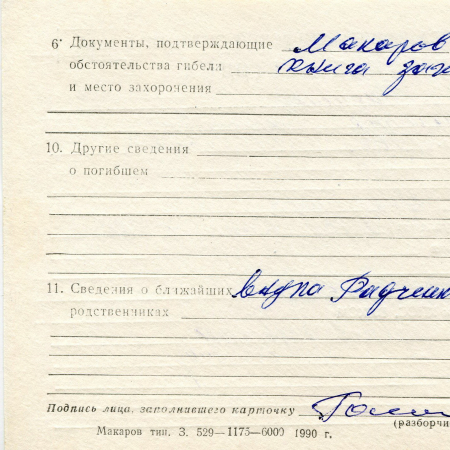 6· Документы, подтверждающие Макаров
обстоятельства гибели книга зах
и место захоронения
10. Другие сведения
о погибшем
11. Сведения о ближайших внука Радченк
родственниках
Подпись лица, заполнившего карточку
(разборчи
Макаров тип. З. 529—1175—6000 1990 г.